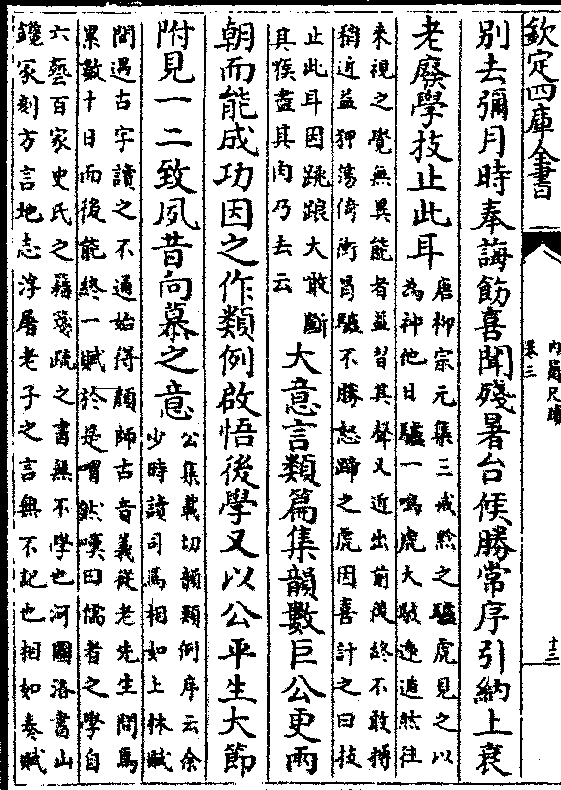 欽定四庫全書
內簡尺牘
卷三
十三
別去彌月時奉誨飭喜聞殘暑台候勝常序引納上衰
老廢學技止此耳
唐柳宗元集三戒黔之驢虎見之以
為神他日驢一鳴虎大駭遠遁然往
來視之覺無異能者益習其聲又近出前後終不敢搏
稍近益狎蕩倚衝冒驢不勝怒蹄之虎因喜計之曰技
止此耳因跳踉大敢斷
其喉盡其肉乃去云
大意言類篇集韻數巨公更兩
朝而能成功因之作類例啟悟後學又以公平生大節
附見一二致夙昔向慕之意
公集載切韻類例序云余
少時讀司馬相如上林賦
間遇古字讀之不通始得顏師古音義從老先生問焉
累數十日而後能終一賦於是喟然嘆曰儒者之學自
六藝百家史氏之籍箋疏之書無不學也河圖洛書山
鑱冢刻方言地志浮屠老子之言無不記也相如奏賦